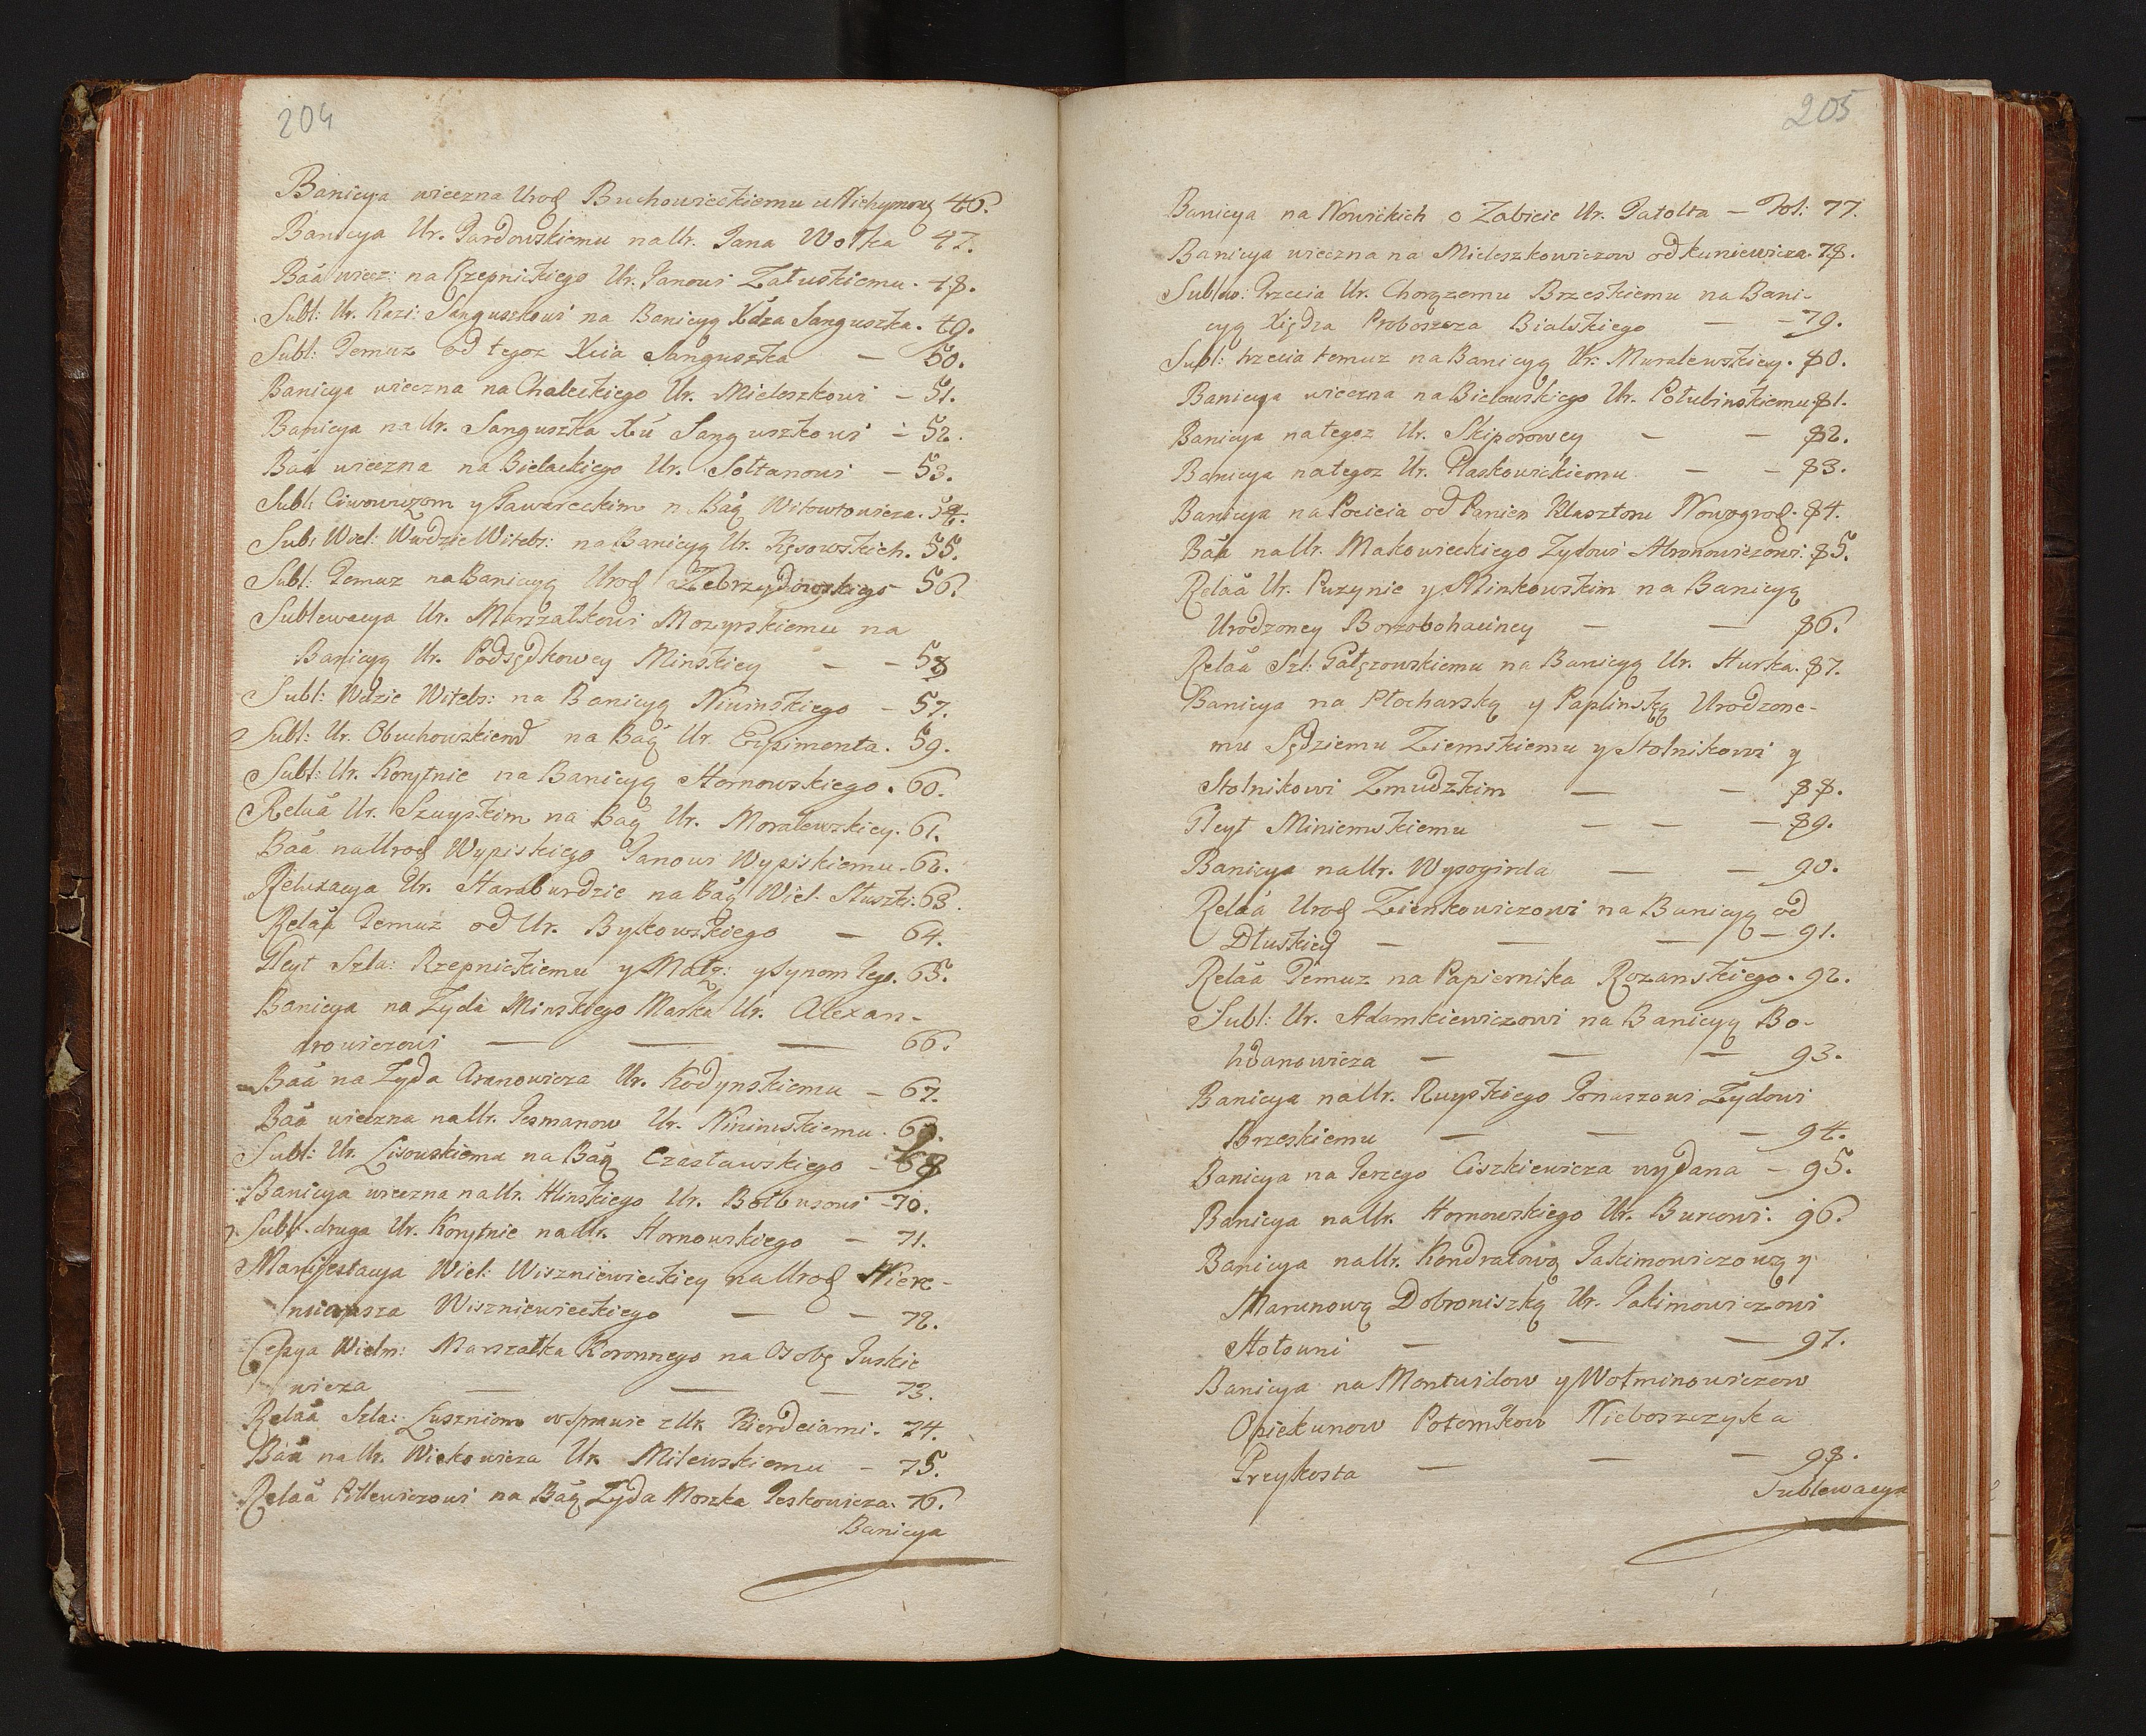 204
Banicya wieczna Urod Buchowieckiemu u Nichymowg 46.
Banicya Ur. Pardowskiemu na Ur. Jana Wołka 47.
Baa wiecz: na Rzepnickiego Ur. Janowi Załuskiemu. 48.
Subl: Ur. Kazi: Sanguszkowi na Banicyą Xdza Sanguszka. 49.
Subl: Temuz od tegoz Xcia Sanguszka — 50.
Banicya wieczna na Chaleckiego Ur. Mieleszkowi — 51.
Banicya na Ur. Sanguszka Xu Sanguszkowi — 52.
Baa wieczna na Bielackiego Ur. Sołtanowi — 53.
Subl: Ciwowiczom y Hawareckim n. Baą Witowtowicza. 54.
Sub: Wiel: Wwdzie Witebs: na Banicyą Ur. Kęsowskich. 55.
Subl: Temuz na Banicyą Urod Zebrzydowskiego 56.
Sublewacya Ur. Marszałkowi Mozyrskiemu na
Banicyą Ur. Podsędkowey Minskiey — — 58
Subl: Wdzie Witebs: na Banicyą Niuinskiego — 57.
Subl: Ur. Obuchowskiemu na Baą Ur. Erpimonta. 59.
Subl: Ur. Korytnie na Banicyą Hornowskiego. 60.
Relaa Ur. Szuyskim na Baą Ur. Moralewskiey. 61.
Baa na Urod Wypiskiego Janowi Wypiskiemu. 62.
Relaxacya Ur. Haraburdzie na Baą Wiel. Słuszki. 63.
Relaa Temuz od Ur. Bykowskiego — 64.
Gleyt Szla: Rzepnickiemu y Małz: y Synom Jego. 65.
Banicya na Zyda Minskiego Marka Ur. Alexan-
drowiczowi — — — 66.
Baa na Zyda Aranowicza Ur. Kodynskiemu — 67.
Baa wieczna na Ur. Jesmanow Ur. Nininskiemu. 69.
Subl: Ur. Lisowskiemu na Baą Czasławskiego — 68
Banicya wieczna na Ur. Hlinskiego Ur. Bołbusowi — 70.
Subl. druga Ur. Korytnie na Ur. Hornowskiego — 71.
Manifestacya Wiel: Wiszniewieckiey na Urod Hiere-
miasza Wiszniewieckiego — — 72.
Cessya Wielm: Marszałka Koronnego na Osobę Juskie
wicza — — — 73.
Relaa Szla: Łuszniom w Sprawie z Ur. Kierdeiami. 74.
Baa na Ur. Wiekowicza Ur. Milewskiemu — 75.
Relaa Pillewiczowi na Baą Zyda Moszka Jeskowicza. 76.
Banicya
205
Banicya na Nowickich o Zabicie Ur. Jatołta — Fol: 77.
Banicya wieczna na Mieleszkowiczow od Kuniewicza. 78.
Sublew: Trzecia Ur. Chorązemu Brzeskiemu na Bani-
cyą Xiędza Proboszcza Bialskiego — — 79.
Subl: trzecia temuz na Banicyą Ur. Muralewskiey. 80.
Banicya wieczna na Bielewskiego Ur. Połubinskiemu 81.
Banicya na tegoz Ur. Skiporowey — — 82.
Banicya na tegoz Ur. Plaskowickiemu — — 83.
Banicya na Pocieia od Panien Klasztoru Nowogrod. 84.
Baa na Ur. Makowieckiego Zydowi Abronowiczowi: 85.
Relaa Ur. Puzynie y Minkowskim na Banicyą
Urodzoney Borzobohaciney — — 86.
Relaa Szl: Gałęzowskiemu na Banicyą Ur. Hurka. 87.
Banicya na Płocharską y Paplinską Urodzone-
mu Sędziemu Ziemskiemu y Stolnikowi y
Stolnikowi Zmudzkim — — 88.
Gleyt Miniewskiemu — — — 89.
Banicya na Ur. Wysogirda — — 90.
Relaa Urod Zienkowiczowi na Banicyą od
Dłuskiey — — — — 91.
Relaa Temuz na Papiernika Rozanskiego. 92.
Subl: Ur. Adamkiewiczowi na Banicyą Bo-
hdanowicza — — — 93.
Banicya na Ur. Ruyskiego Jonaszowi Zydowi
Brzeskiemu — — — 94.
Banicya na Jerzego Ciszkiewicza wydana — 95.
Banicya na Ur. Hornowskiego Ur. Burcowi. 96.
Banicya na Ur. Kondratową Jakimowiczową y
Marunową Dobroniszką Ur. Jakimowiczowi
Hołowni — — — 97.
Banicya na Montwidow y Wołminowiczow
Opiekunow Potomkow Nieboszczyka
Przykosta — — — 98.
Sublewacya